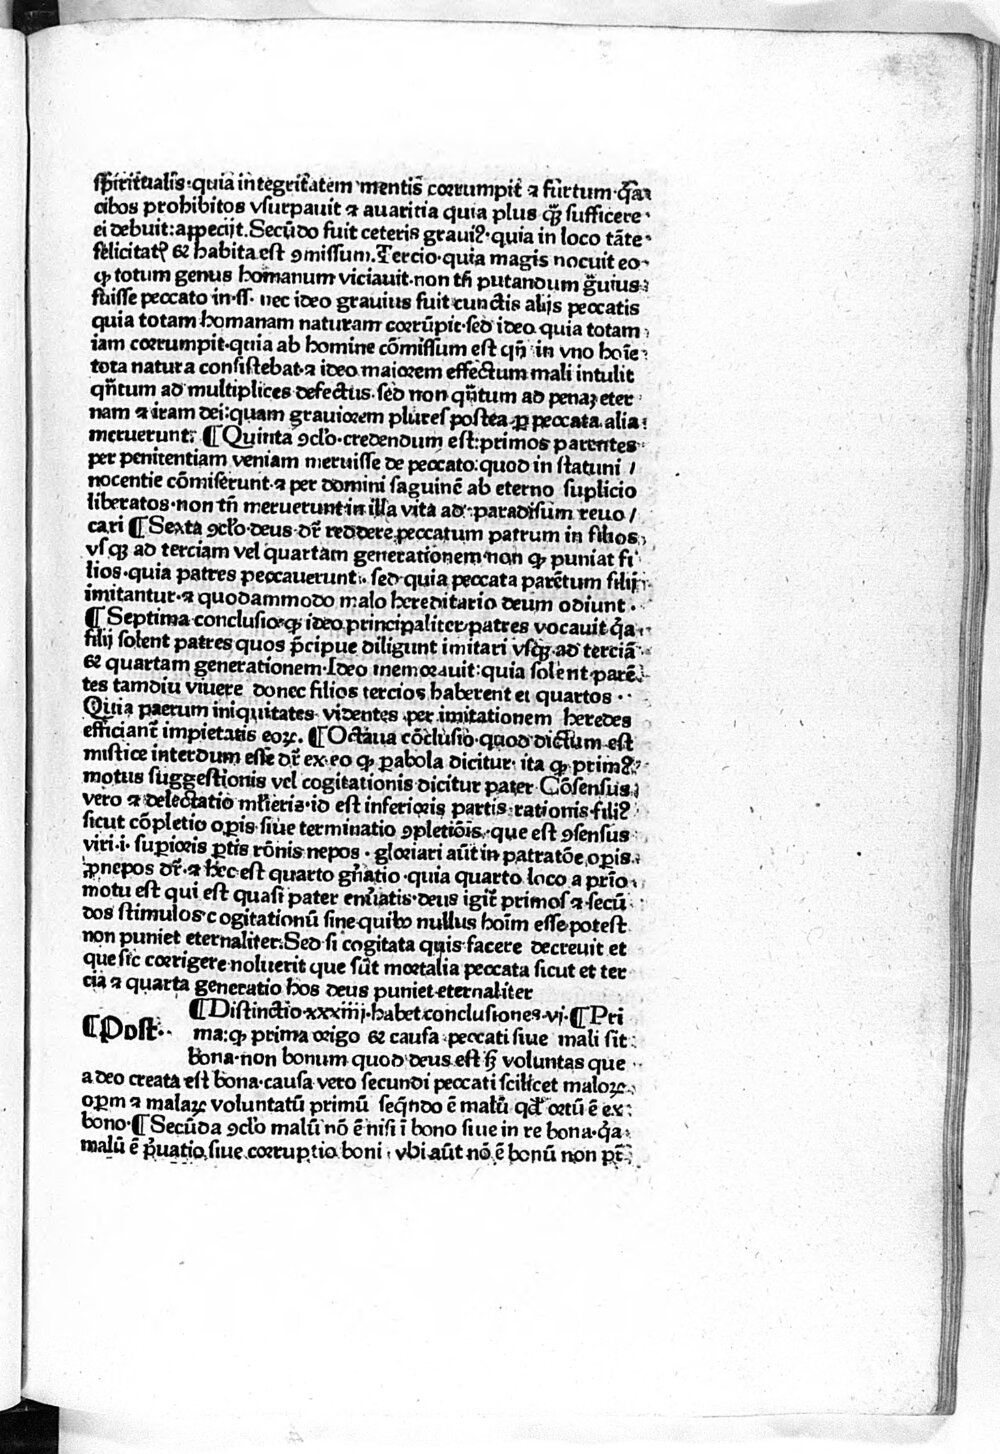 sp̄irit̄ualis·quia integrit̄atem mentis corrumpit ⁊ furtum·q̄a
cibos prohibitos vsurpauit ⁊ auaritia quia plus qȝ̄ sufficere·
ei debuit:appecijt.Secūdo fuit ceteris grauiꝰ·quia in loco tāte·
felicitatꝭ & habita est ꝯmissum.Tercio·quia magis nocuit eo·
ꝙ totum genus homanum viciauit·non tn̄ putandum ḡuius:
fuisse peccato in·ss· nec ideo grauius fuit cunctis alijs peccatis
quia totam homanam naturam corrūpit·sed ideo quia totam
iam corrumpit·quia ab homine cōmissum est qn̄ in vno hoīe:
tota natura consistebat·⁊ ideo maiorem effectum mali intulit
qn̄tum ad multiplices defectus·sed non qn̄tum ad penaꝫ eter
nam ⁊ iram dei:quam grauiorem plures postea ꝑ peccata alia:
meruerunt: ¶Quinta ꝯcl̄o·credendum est:primos parentes
per penitentiam veniam meruisse de peccato:quod in statu ni /
nocentie cōmiserunt·⁊ per domini saguinē ab eterno suplicio
liberatos·non tn̄ meruerunt in illa vita ad paradisum reuo /
cari ¶Sexta ꝯcl̄o·deus dr̄ reddere peccatum patrum in filios
vsqȝ ad terciam vel quartam generationem·non ꝙ puniat fi
lios·quia patres peccauerunt· sed quia peccata parētum filij
imitantur·⁊ quodammodo malo hereditario deum odiunt·
¶Septima conclusio·ꝙ ideo principaliter patres vocauit q̄a
filij solent patres quos p̄cipue diligunt imitari vsqȝ ad terciā
& quartam generationem·Ideo memorauit:quia solent parē
tes tamdiu viuere donec filios tercios haberent et quartos··
Quia paerum iniquitates videntes per imitationem heredes
efficiant̄ impietatis eoꝝ. ¶Octaua cōclusio·quod dictum est
mistice interdum esse dr̄ ex eo ꝙ ꝑabola dicitur·ita ꝙ primꝰ
motus suggestionis vel cogitationis dicitur pater Cōsensus
vero ⁊ delectatio ml̄ieris·id est inferioris partis rationis filiꝰ
sicut cōpletio oꝑis siue terminatio ꝯpletiōis·que est ꝯsensus
viri·i·suꝑioris ꝑtis rōnis nepos·gloriari aūt in patratōe oꝑis
ꝓnepos dr̄·⁊ hec est quarto gn̄atio·quia quarto loco a prīo
motu est qui est quasi pater enūatis·deus igit̄ primos ⁊ secū
dos stimulos cogitationū sine quibꝰ nullus hoīm esse potest
non puniet eternaliter.Sed si cogitata quis facere decreuit et
que sic corrigere noluerit que sūt mortalia peccata sicut et ter
cia ⁊ quarta generatio hos deus puniet eternaliter
¶Post··
¶Distinctio·xxxiiij·habet conclusiones·vj·¶Pri
ma:ꝙ prima origo & causa peccati siue mali sit
bona·non bonum quod deus est sꝫ voluntas que
adeo creata est bona·causa vero secundi peccati scilicet maloꝝ
oꝑm ⁊ malaꝝ voluntatū primū seqn̄do ē malū qd̄ ortū ē ex
bono·¶Secūda ꝯcl̄o malū nō ē nisi ī bono siue in re bona·q̄a
malū ē p̄uatio siue corruptio boni·vbi aūt nō ē bonū non pt̄